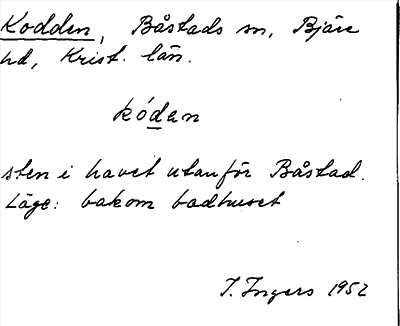 Kodden, Båstads sn, Bjäre
hd, Krist. län.
kódan
sten i havet utanför Båstad.
Läge: bakom badhuset
I. Ingers 1952